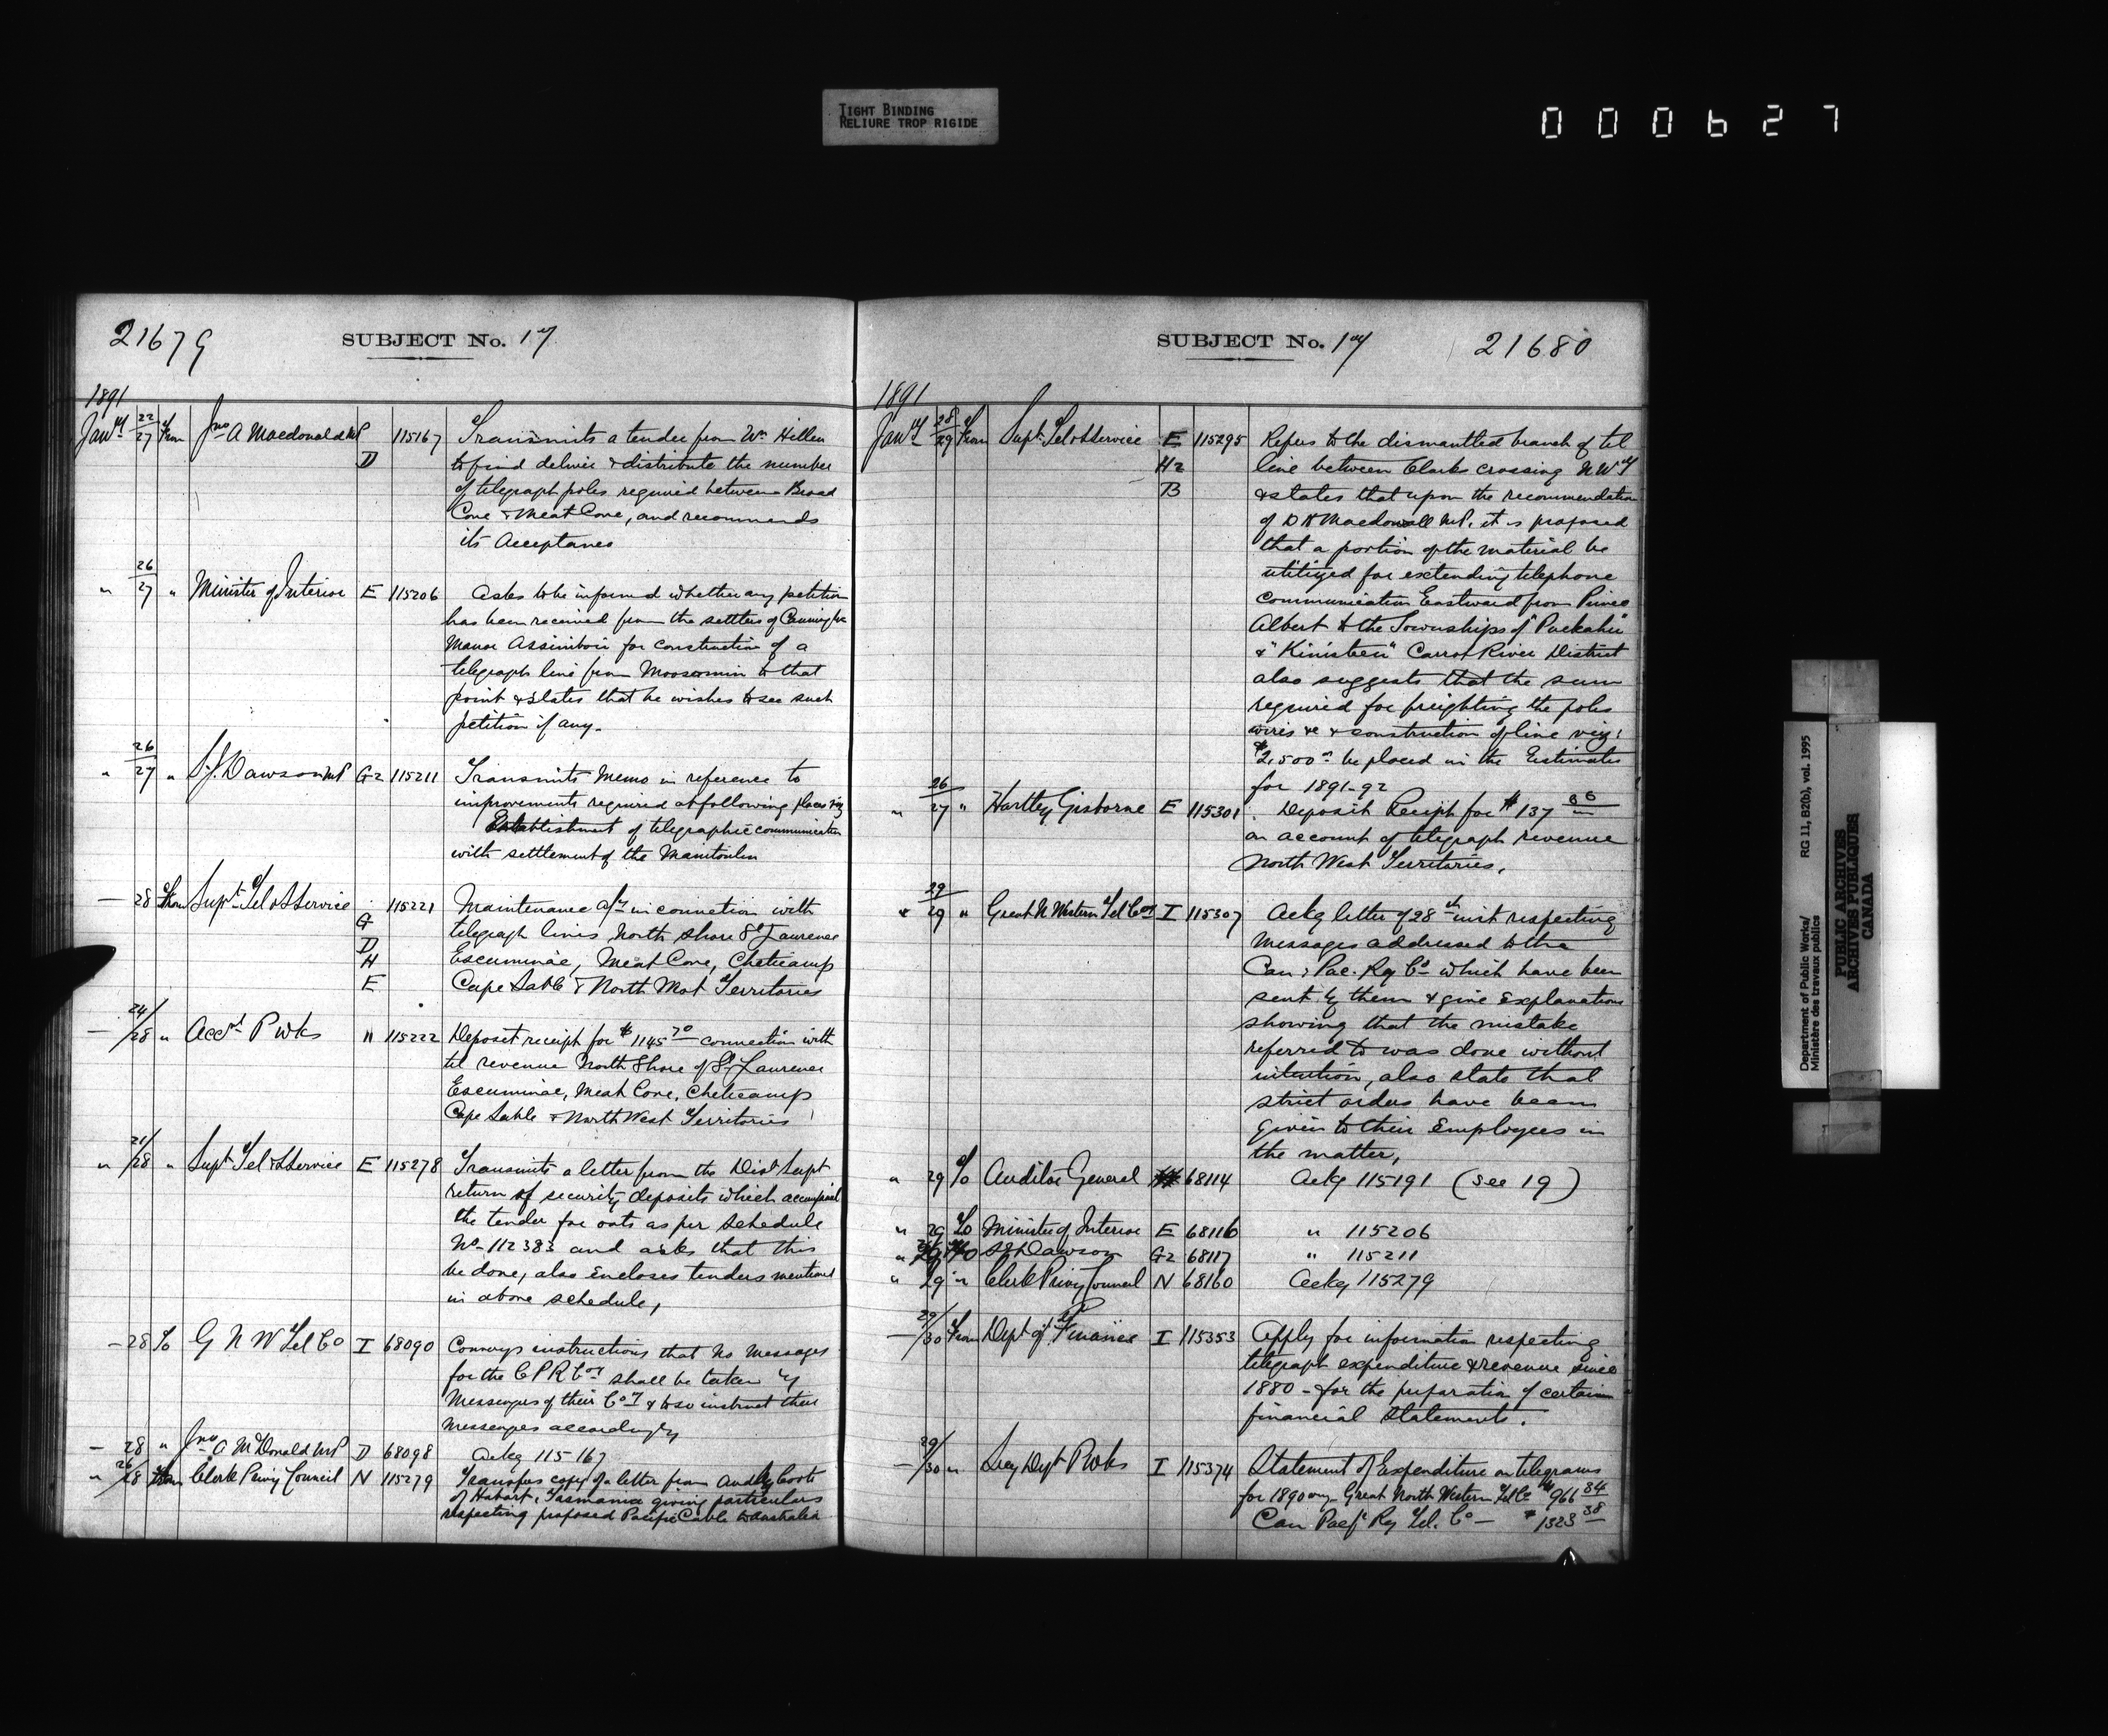 TIGHT BINDING
RELIURE TROP RIGIDE
000627
21679
SUBJECT No. 17
1891
Jany 22/27 From Jno A Macdonald MP D 115167 Transmits a tender from Wm
to find deliver & distribute the number
of telegraph poles required between Broad
Cove & Meat Cove, and recommends
its Acceptance
" 26/27 " Minister of Interior E 115206 Asks to be informed whether any petition
has been received from the settlers of Cannington
Manor Assiniboia for construction of a
telegraph line from Moosomin to that
point & states that he wishes to see such
petition if any.
" 26/27 " S.J. Dawson MP G2 115211 Transmits Memo in reference to
improvements required at following places viz
Establishment of telegraphic communication
with settlement of the Manitoulin
— 28 From Supt Tel & S Service 115221 Maintenance a/c in connection with
G telegraph lines North Shore St Laurence
D
H Escuminac, Meat Cove, Cheticamp
E Cape Sable & North West Territories
— 24/28 " Acct P Wks " 115222 Deposit receipt for $1145 70 connection with
tel revenue North Shore of St Laurence
Escuminac, Meat Cove, Cheticamp
Cape Sable & North West Territories
" 21/28 " Supt Tel & S Service E 115278 Transmits a letter from the Dist Supt
return of security deposits which accompanied
the tender for oats as per schedule
No 112383 and asks that this
be done, also Encloses tenders mentioned
in above schedule,
— 28 To G N W Tel Co I 68090 Conveys instructions that no messages
for the C P R Coy shall be taken by
Messengers of their Coy & to so instruct their
messengers accordingly
— 28 " Jno A McDonald MP D 68098 Ackg 115167
" 26/28 From Clerk Privy Council N 115279 Transfers copy of a letter from Audley Coote
of Hobart, Tasmania giving particulars
respecting proposed Pacific Cable to Australia
SUBJECT No. 17
21680
1891
Jany 28/29 From Supt Tel & S Service E 115295 Refers to the dismantled branch of tel
H2 line between Clarks crossing N W T
B & states that upon the recommendation
of D H Macdowall MP. it is proposed
that a portion of the material be
utilized for extending telephone
communication Eastward from Prince
Albert to the Townships of "Puckahn"
& "Kinisteen" Carrot River District
also suggests that the sum
required for freighting the poles
wires &c & construction of line viz:
$2,500 be placed in the Estimates
for 1891-92
" 26/27 " Hartley Gisborne E 115301 Deposit Receipt for $137
on account of telegraph revenue
North West Territories.
" 29/29 " Great N Western Tel Coy I 115307 Ackg letter of 28th inst respecting
messages addressed to the
Can: Pac. Ry Co which have been
sent by them & give Explanations
showing that the mistake
referred to was done without
intention, also state that
strict orders have been
given to their Employees in
the matter,
" 29 To Auditor General 68114 Ackg 115191 (see 19)
" 29 To Minister of Interior E 68116 " 115206
" 29 To S J Dawson G2 68117 " 115211
" 29 " Clerk Privy Council N 68160 Ackg 115279
— 29/30 From Dept of Finance I 115353 Apply for information respecting
telegraph expenditure & revenue since
1880 - for the preparation of certain
financial statements.
— 29/30 " Secy Dept P Wks I 115374 Statement of Expenditure on telegrams
for 1890 Great North Western Tel Co $966 84
Can. Pacf Ry Tel. Co — $1323 38
Department of Public Works/
Ministère des travaux publics
RG 11, B2(b), vol. 1995
PUBLIC ARCHIVES
ARCHIVES PUBLIQUES
CANADA